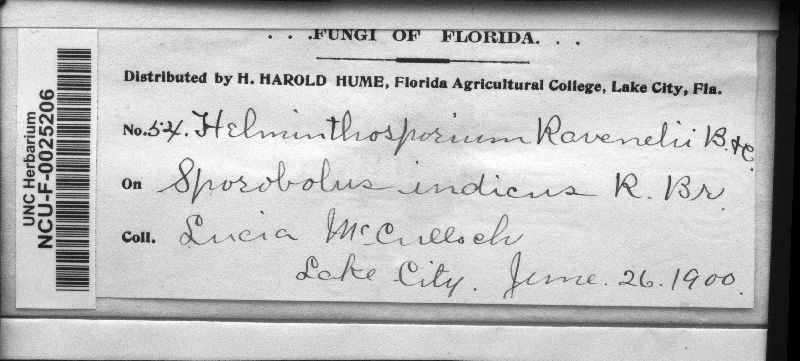 . . .FUNGI OF FLORIDA. . .
Distributed by H. HAROLD HUME, Florida Agricultural College, Lake City, Fla.
No. 54. Helminthosporium Ravenelii B. & C.
On Sporobolus indicus R. Br
Coll. Lucia McCulloch
Lake City. June. 26. 1900.
UNC Herbarium
NCU-F-0025206